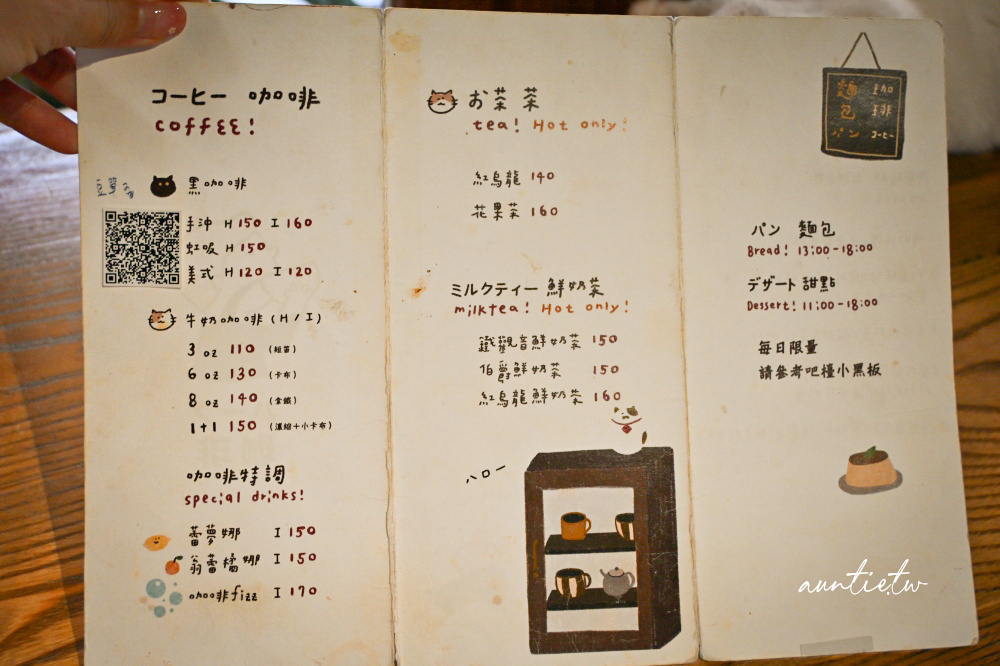 コーヒー 咖啡
coffee!
豆單
黑咖啡
手沖 H 150 I 160
虹吸 H 150
美式 H 120 I 120
牛奶咖啡 (H / I)
3 oz 110 (短笛)
6 oz 130 (卡布)
8 oz 140 (拿鐵)
1+1 150 (濃縮+小卡布)
咖啡特調
special drinks!
蕾夢娜 I 150
翁蕾橘娜 I 150
咖啡fizz I 170
お茶 茶
tea! Hot only!
紅烏龍 140
花果茶 160
ミルクティー 鮮奶茶
milktea! Hot only!
鐵觀音鮮奶茶 150
伯爵鮮奶茶 150
紅烏龍鮮奶茶 160
ハロー
麵包 咖啡
パン コーヒー
パン 麵包
Bread! 13:00-18:00
デザート 甜點
Dessert! 11:00-18:00
每日限量
請參考吧檯小黑板
auntie.tw